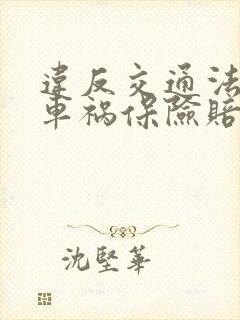 違反交通法
車祸保險賠
沈堅華